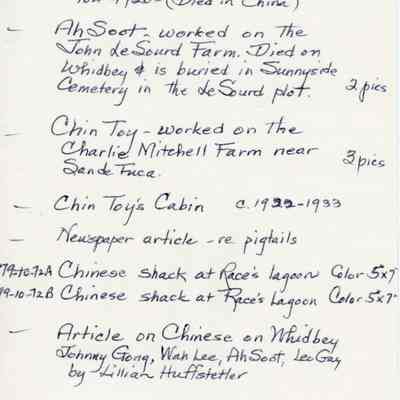 1920 - (Died in China)
- Ah Soot - worked on the
John LeSourd Farm. Died on
Whidbey & is buried in Sunnyside
Cemetery in the LeSourd plot. 2 pics
- Chin Toy - worked on the
Charlie Mitchell Farm near
San de Fuca. 3 pics
- Chin Toy's Cabin c. 1922-1933
- Newspaper article - re pigtails
79-10-72A Chinese shack at Race's lagoon Color 5x7"
79-10-72B Chinese shack at Race's Lagoon Color 5x7"
- Article on Chinese on Whidbey
Johnny Gong, Wah Lee, Ah Soot, Leo Gay
by Lillian Huffstetler